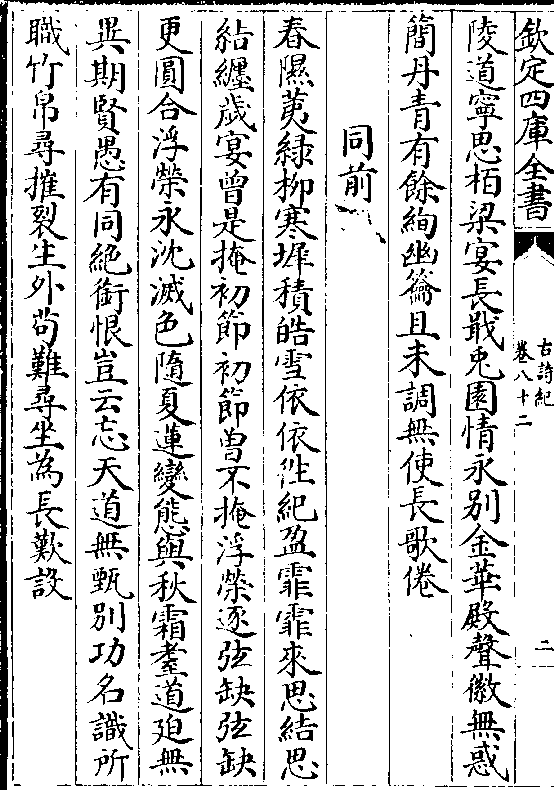 欽定四庫全書
古詩紀
卷八十二
二
陵道寧思栢梁宴長戢兎園情永別金華殿聲徽無惑
簡丹青有餘絢幽籥且未調無使長歌倦
同前
春隰荑綠柳寒墀積皓雪依依徃紀盈霏霏來思結思
結纏歲宴曾是掩初節初節曾不掩浮榮逐弦缺弦缺
更圓合浮榮永沈滅色隨夏蓮變態與秋霜耋道廹無
異期賢愚有同絕銜恨豈云忘天道無甄別功名識所
職竹帛尋摧裂生外苟難尋坐為長歎設